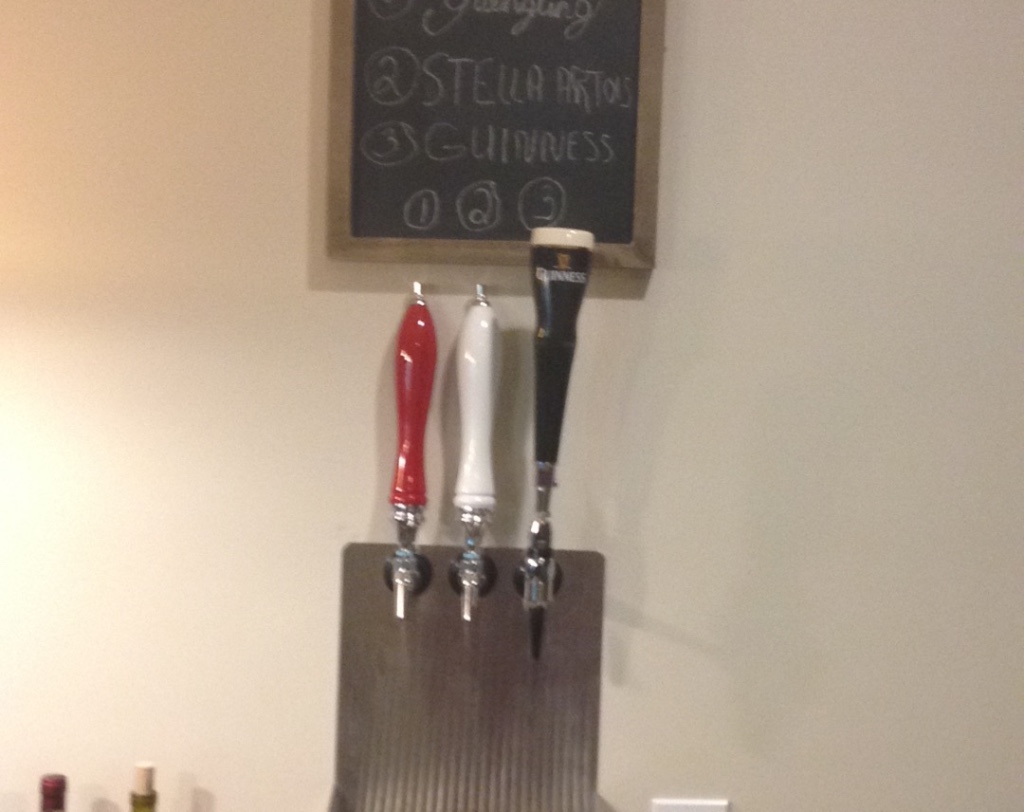 ① Yuengling
② STELLA ARTOIS
③ GUINNESS
① ② ③
GUINNESS